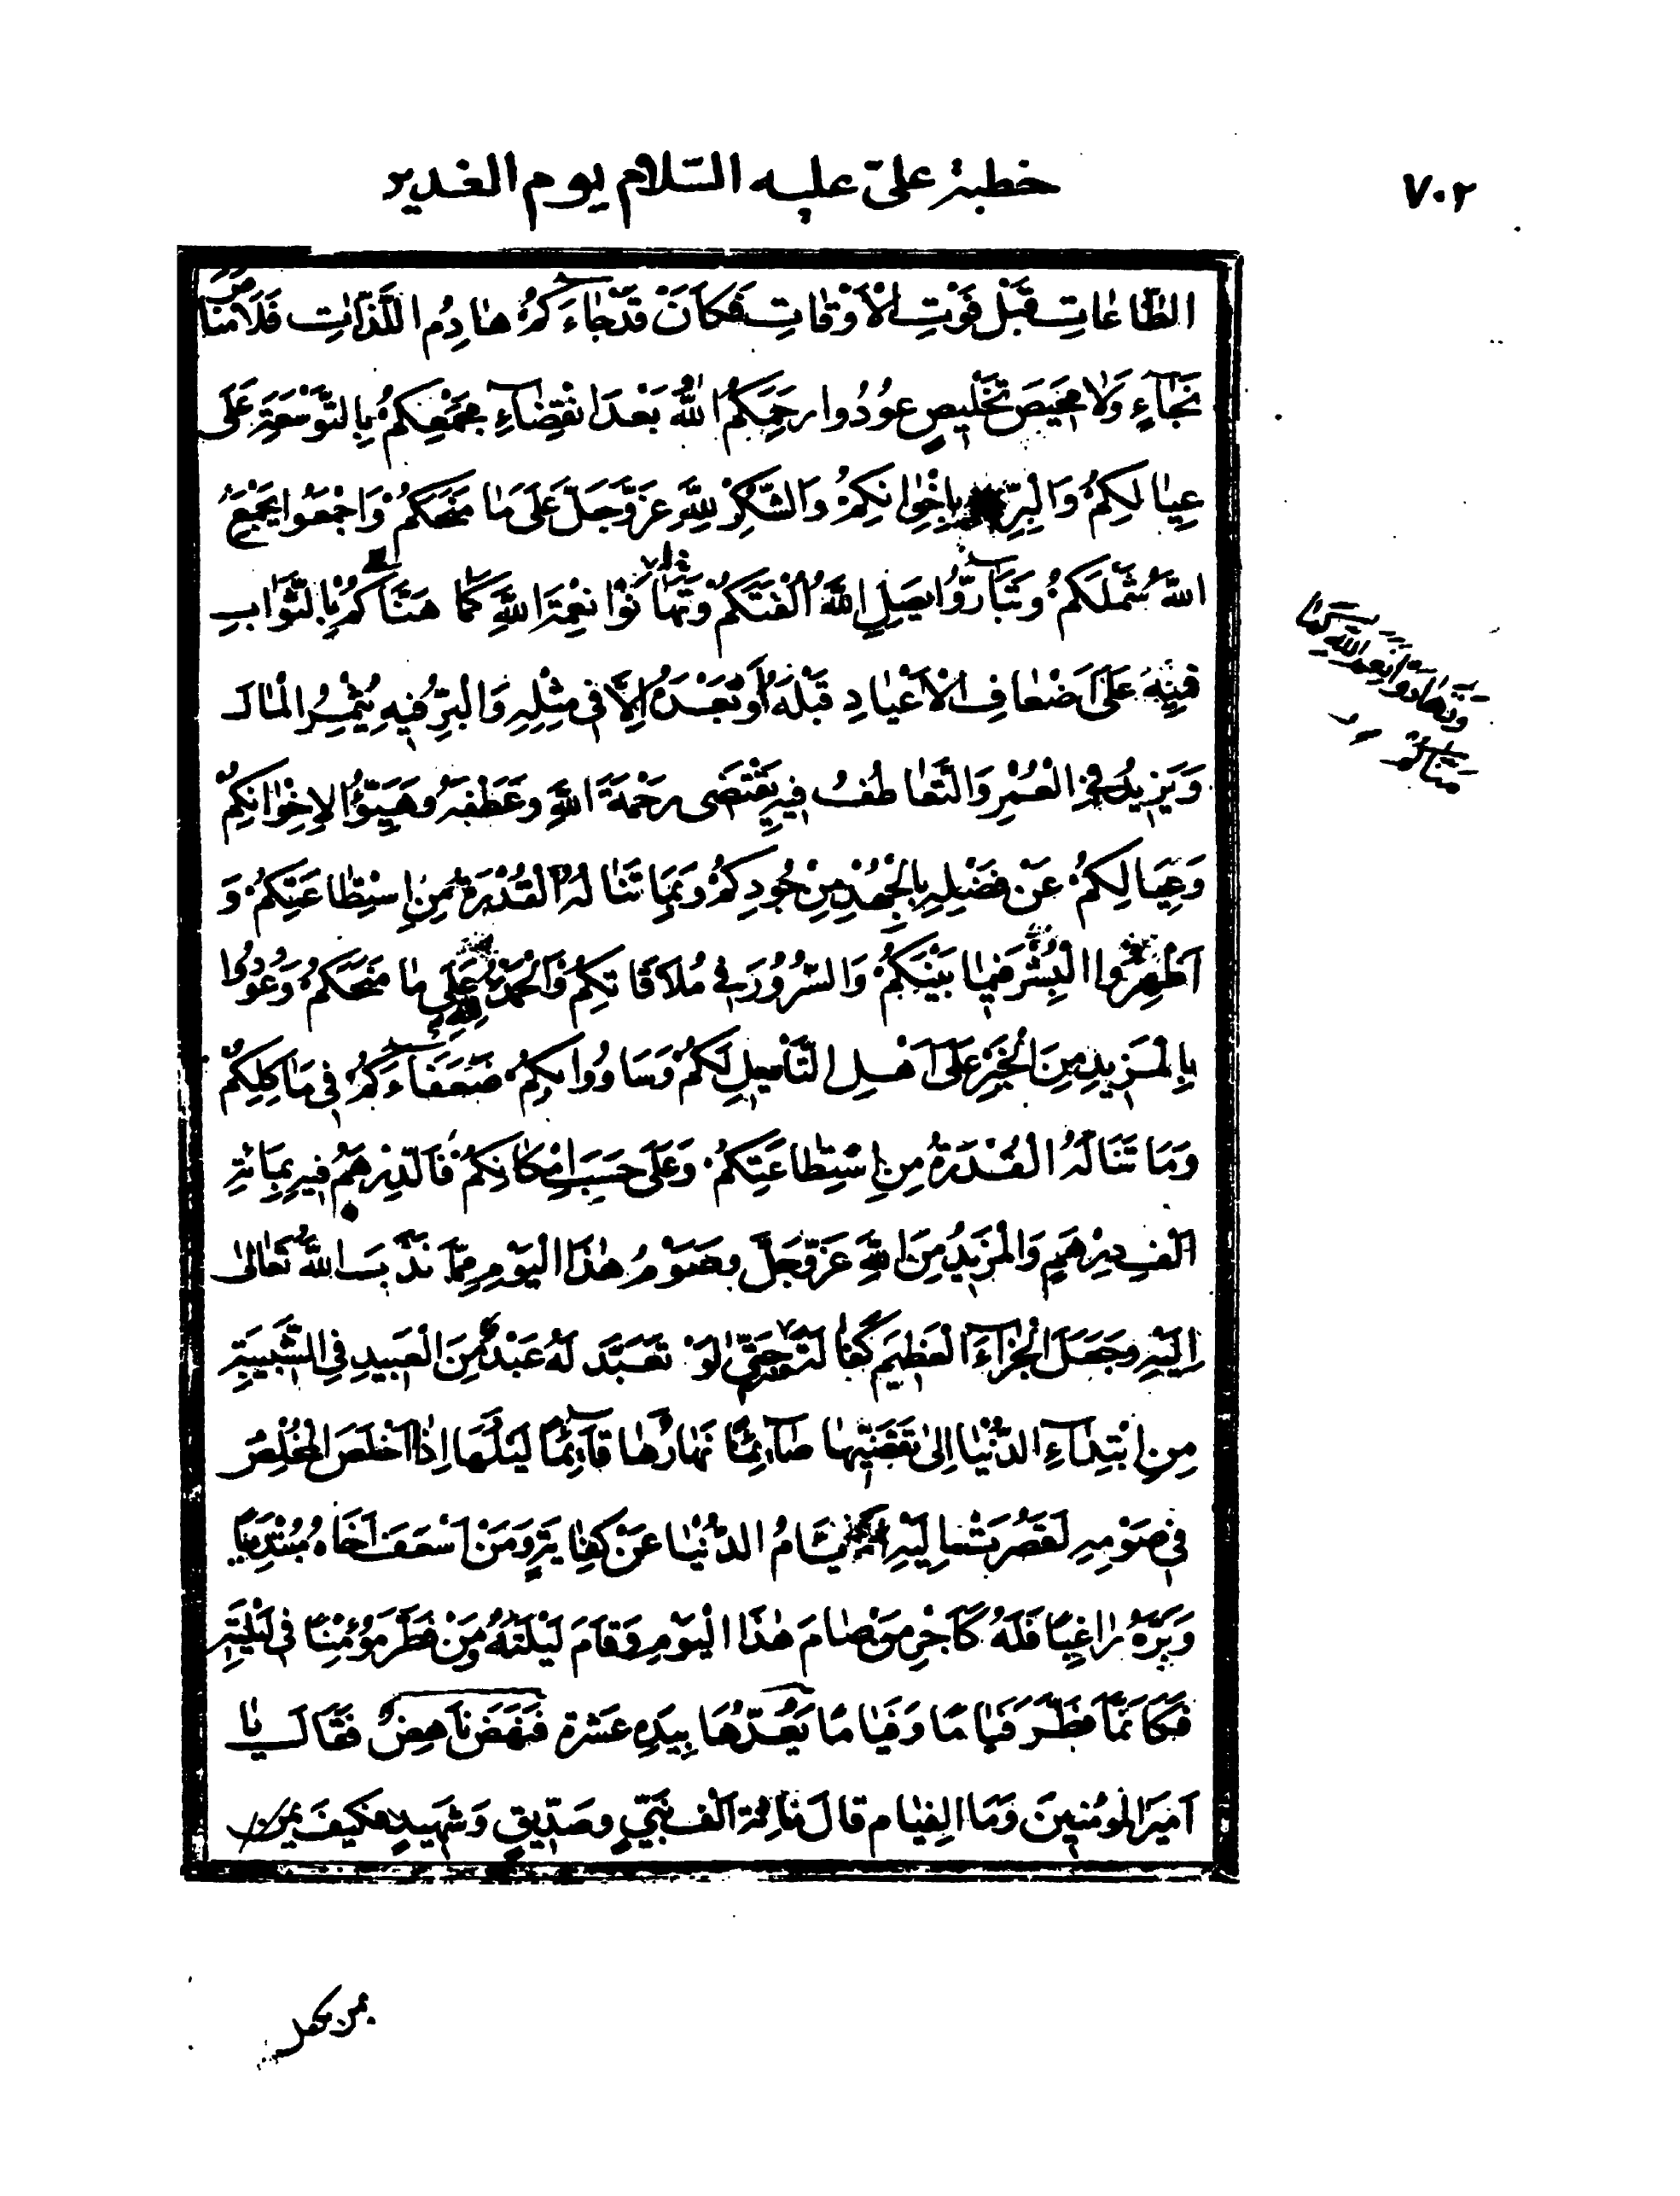 ٧٠٢
خطبة علىّ عليه السّلام يوم الغدير
الطّاعاتِ قَبْلَ فَوْتِ الْاَوْقاتِ فَكَاَنَ قَدْ جٰاءَكُمْ هادِمُ اللَّذّاتِ فَلا مَناصَ
نَجٰآءٍ وَلا مَحيَصَ تَخْليصٍ عوُدُوا رحِمَكُمُ اللّٰهُ بَعْدَ انقِضٰآءِ مَجْمَعِكُمْ بِالتَّوْسْعَةِ عَلَى
عِيالِكُمْ وَالْبِرِّ بِاِخْوانِكُمْ وَالشُّكِرْ لِلّٰهِ عَزَّوَجَلَّ عَلَى مَا مَنَحَكُمْ وَاجْمَعُوا يَجْمَعُ
اللّٰهُ شَمْلَكُمْ وَتَبَارُّوا يَصِلِ اللّٰهُ اُلْفَتَكُمْ وَتَهٰانَوْا نِعْمَةَ اللّٰهِ كَمٰا هَنَّاَكُمْ بِالثَّوٰابِ
فيٖهِ عَلَى اَضْعافِ الْاَعْيادِ قَبْلَهُ اَوْ بَعْدَهُ اِلّا فى مِثْلِهِ وَالْبِرُّ فيهِ يُثْمِرُ الْمٰالَ
وَيَزيدُ فِى الْعُمْرِ وَالتَّعاطُفُ فيهِ يَقْتَضى رَحْمَةَ اللّٰهِ وعَطْفَهُ وهَيِّؤُا لِاِخْوانِكُمْ
وَعِيَالِكُمْ عَنْ فَضْلِهِ بِالْجُهْدِ مِنْ جُودِكُمْ وَبِمَا تَنٰالُهُ الْقُدْرَةُ مِنِ اسْتِطاعَتِكُمْ وَ
اَظْهِرُوا الْبِشْرَ فيمٰا بَيْنَكُمْ وَالسُّرُورَ فى مُلاقاتِكُمْ وَالْحَمْدُ لِلّٰهِ عَلَى مٰا مَنَحَكُمْ وَعُودُوا
بِالْمَزيدِ مِنَ الْخَيْرِ عَلَى اَهْلِ التَّاْميلِ لَكُمْ وَسَاوُوا بِكُمْ ضُعَفٰاءَكُمْ فى مَاكِلِكُمْ
وَمَا تَنَالُهُ الْقُدْرَةُ مِنِ اسْتِطاعَتِكُمْ وَعَلَى حَسَبِ اِمْكانِكُمْ فَالدِّرْهَمُ فيهِ بِمِائَةِ
اَلْفِ دِرْهَمٍ وَالْمَزيدُ مِنَ اللّٰهِ عَزَّوَجَلَّ وصَوْمُ هٰذَا الْيَوْمِ مِمّا نَدَبَ اللّٰهُ تَعٰالىٰ
اِلَيْهِ وجَعَلَ الْجَزٰآءَ الْعَظيمَ كَفٰالَةً حَتّىٰ لَوْ تَعَبَّدَ لَهُ عَبْدٌ مِنَ الْعَبيدِ فِى الشَّبيبَةِ
مِنِ ابْتِدٰآءِ الدُّنْيٰا اِلىٰ تَقَضّيهٰا صٰآئِمًا نَهارُها قٰآئِمًا لَيْلُهٰا اِذٰا اَخْلَصَ الْمُخْلِصُ
فى صَوْمِهِ لَقَصُرَتْ اِلَيْهِ اَيّٰامُ الدُّنْيٰا عَنْ كِفٰايَةٍ وَمَنْ اَسْعَفَ اَخَاهُ مُبْتَدِيًا
وَبَرَّهُ راغِبًا فَلَهُ كَاَجْرِ مَنْ صٰامَ هٰذَا الْيَوْمِ وَقامَ لَيْلَتَهُ وَمَنْ فَطَّرَ مُؤْمِنًا فى لَيْلَتِهِ
فَكَاَنَّمَا فَطَّرَ فِيامًا وَفِيٰامًا يَعُدُّهَا بِيَدِهِ عَشرة فَنَهَضَ نٰاهِضٌ فَقٰالَ يٰا
اَميرَ الْمُؤمنينَ وَمَا الفِيٰام قالَ مِائَة اَلْفِ نَبِىٍّ وصِدّيقٍ وَشَهيدٍ فكيفَ بمن
وَتَهٰادَوْا نِعَمَ اللّٰهِ كَمٰا
بمن تكفل